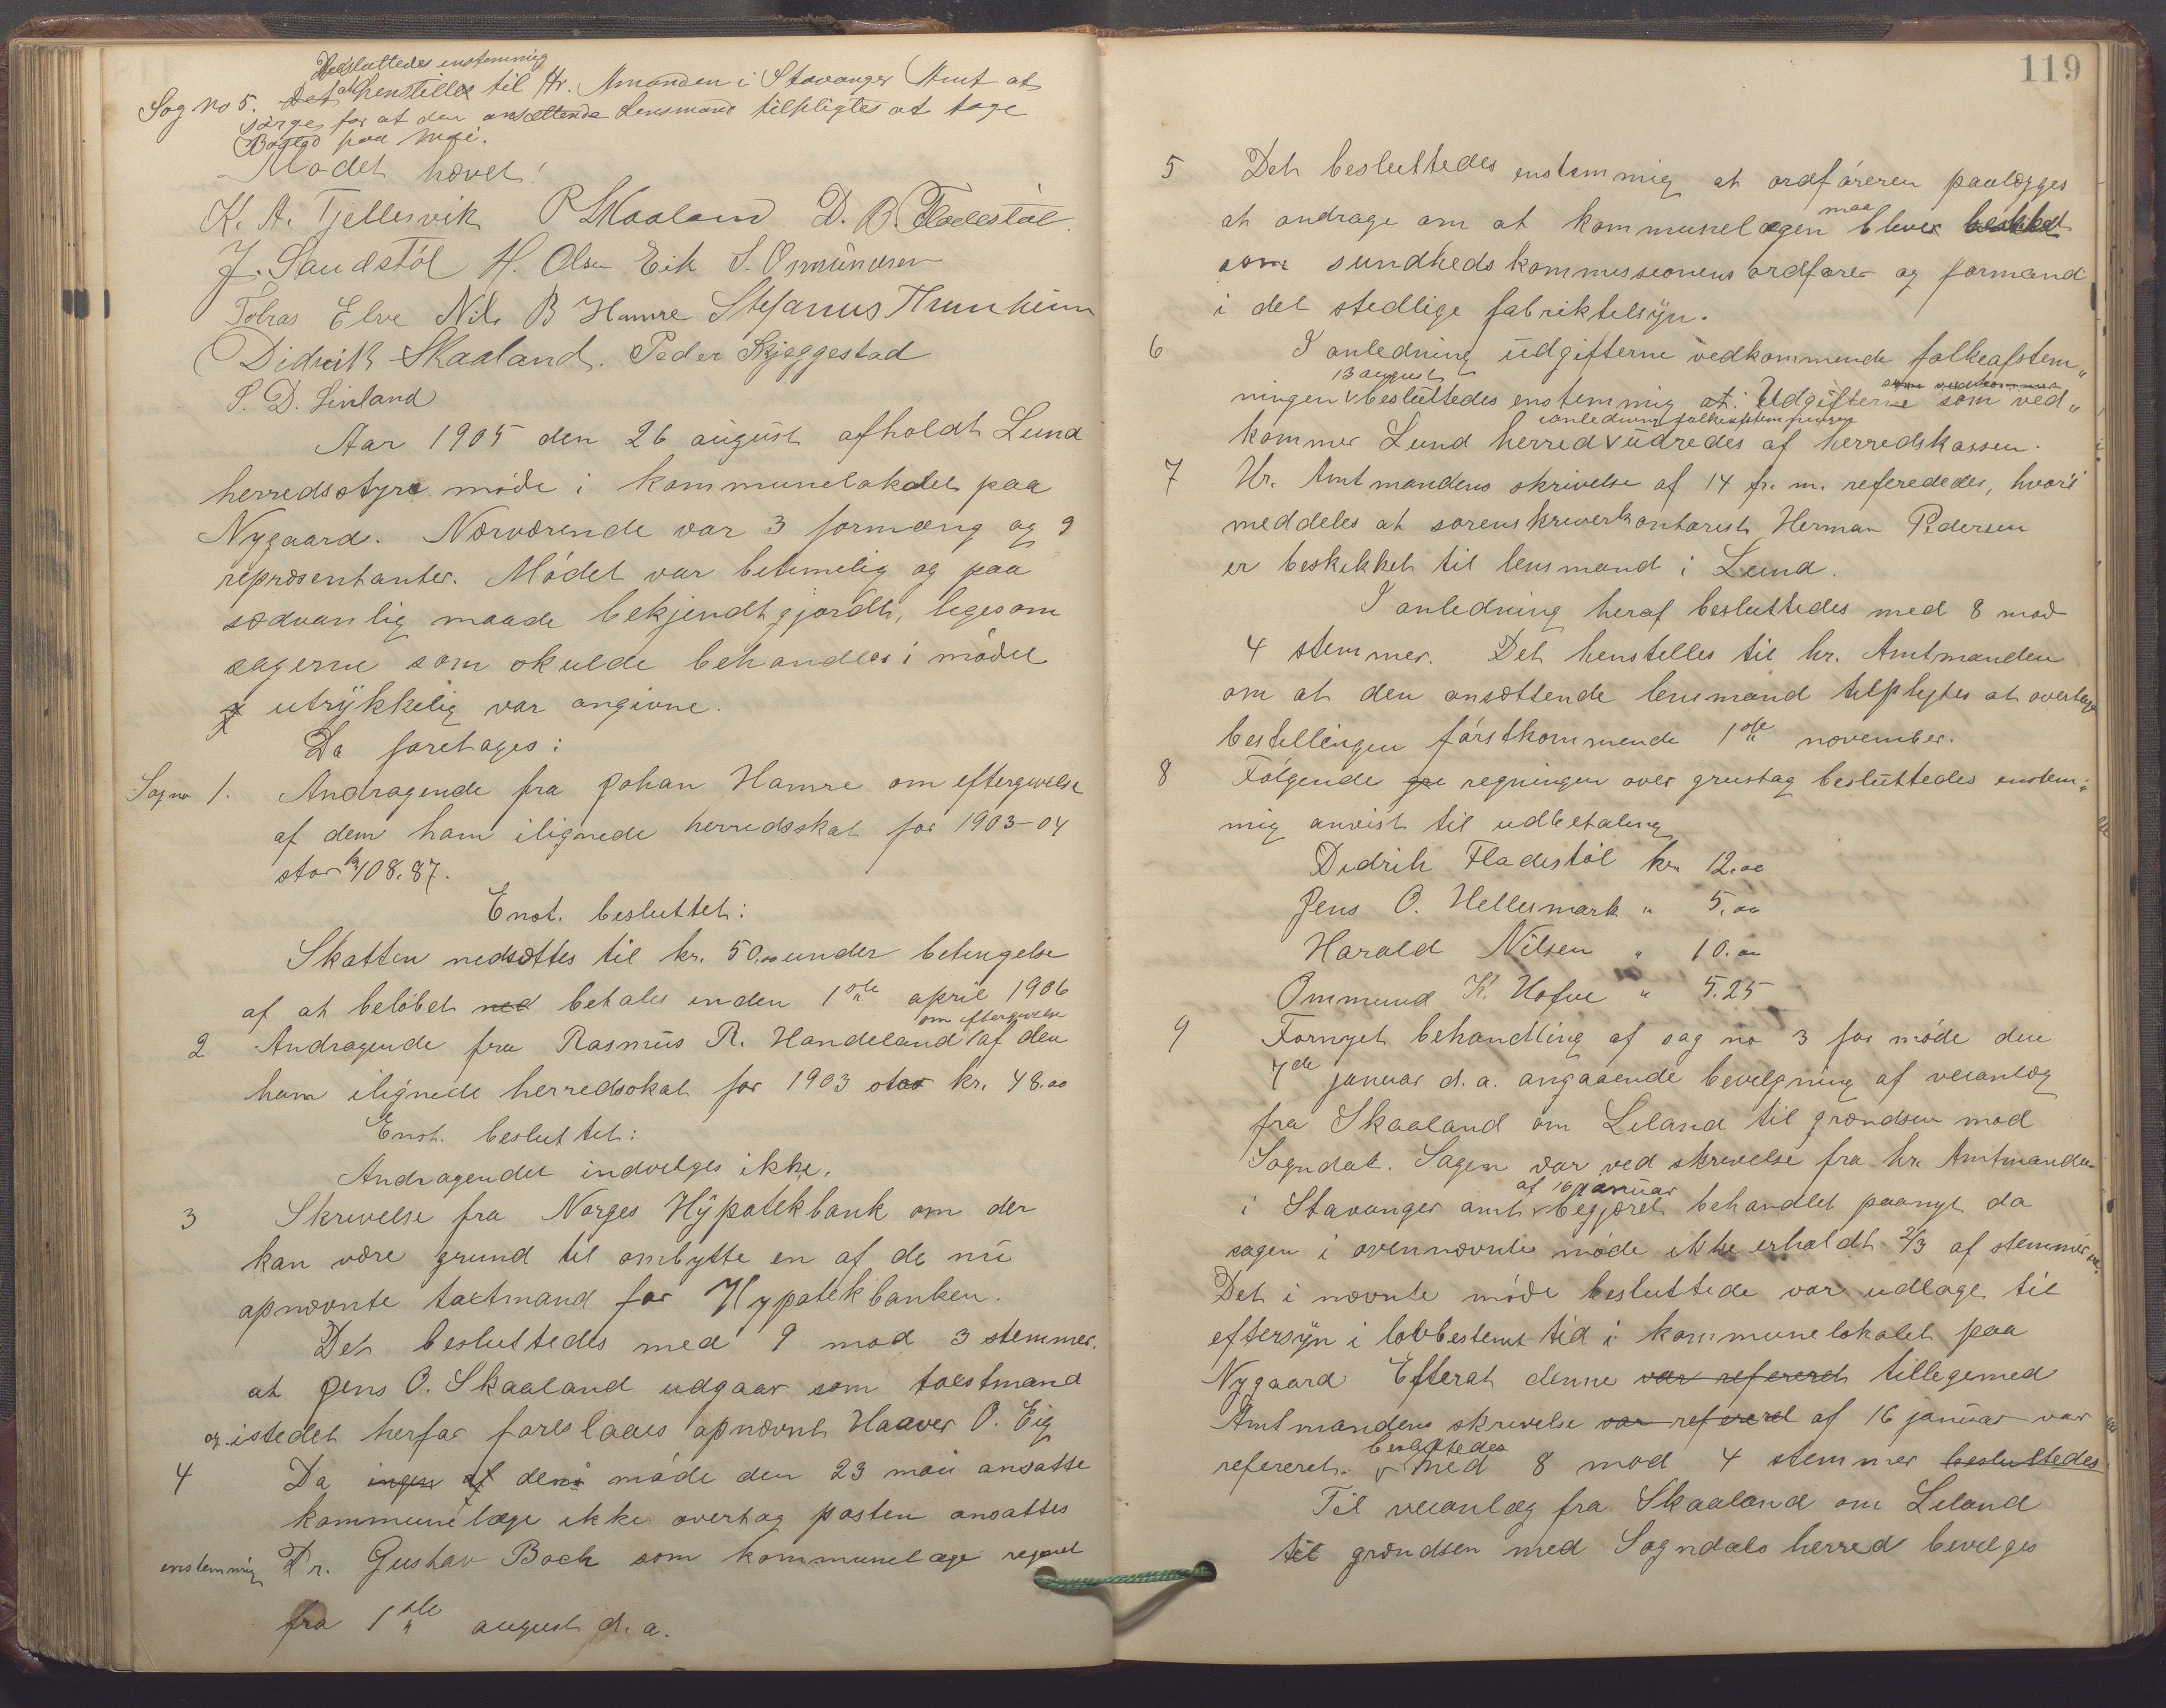 Besluttedes enstemmig
Sag no 5. Det at henstilles til Hr. Amanden i Stavanger Amt at
sørge for at den ansættende Lensmand tilpligtes at tage
Bosted paa Moi.
Mødet hævet!
K. A. Tjellesvik P Skaaland D. B. Fladestøl
J. Sandstøl H. Olsen Eik S. Osmundsen
Tobias Elve Nils B Hamre Stefanus Trunheim
Didrik Skaaland. Peder Skjeggestad
S. D. Linland
Aar 1905 den 26 august afholdt Lund
herredsstyre møde i kommunelokalet paa
Nygaard. Nærværende var 3 formæng og 9
repræsentanter. Mødet var betimelig og paa
sædvanlig maade bekjendtgjordt, ligesom
sagerne som skulde behandles i mødet
utrykkelig var angivne.
Da foretages:
Sag no 1. Andragende fra Johan Hamre om eftergivelse
af dem ham ilignede herredsskat for 1903-04
stor kr 108.87.
Enst. besluttet:
Skatten nedsættes til kr. 50.00 under betingelse
af at beløbet ned betales inden 1ste april 1906
om eftergivelse
2 Andragende fra Rasmus R. Handeland af den
ham ilignede herredsskat for 1903 stor kr. 48.00
Enst. besluttet:
Andragendet indvilges ikke.
3 Skrivelse fra Norges Hypotekbank om der
kan være grund til ombytte en af de nu
opnævnte taxtmænd for Hypotekbanken.
Det besluttedes med 9 mod 3 stemmer.
at Jens O. Skaaland udgaar som takstmand
og istedet herfor foreslaaes opnævnt Haaver O. Eig
4 Da ingen af den i møde den 23 mai ansatte
kommunelæge ikke overtog posten ansattes
enstemmig Dr. Gustav Bock som kommunelæge regnet
fra 1ste august d. a.
119
5 Det besluttedes enstemmig at ordføreren paalægges
maa
at andrage om at kommunelægen bliver beskikket
som sundhedskommissionens ordfører og formand
i det stedlige fabriktilsyn.
6 I anledning udgifterne vedkommende folkeafstem„
13 august
ningen besluttedes enstemmig at: Udgifterne som ved„
ianledning folkeafstemningen
kommer Lund herred udredes af herredskassen.
7 Hr. Amtmandens skrivelse af 14 fr. m. refereredes, hvori
meddeles at sorenskriverkontorist Herman Pedersen
er beskikket til lensmand i Lund.
I anledning heraf besluttedes med 8 mod
4 stemmer. Det henstilles til hr. Amtmanden
om at den ansættende lensmand tilpligtes at overtage
bestillingen førstkommende 1ste november.
8 Følgende gre regninger over grustag besluttedes enstem„
mig anvist til udbetaling
Didrik Fladestøl kr. 12.00
Jens O. Hellesmark " 5.00
Harald Nilsen " 10.00
Ommund K. Hofve " 5.25
9 Fornyet behandling af sag no 3 for møde den
7de januar d. a. angaaende bevilgning af veianlæg
fra Skaaland om Liland til grændsen mod
Sogndal. Sagen var ved skrivelse fra hr. Amtmanden
af 16 januar
i Stavanger amt begjæret behandlet paanyt da
sagen i ovennævnte møde ikke erholdt 2/3 af stemmerne.
Det i nævnte møde besluttede var udlagt til
eftersyn i lovbestemt tid i kommunelokalet paa
Nygaard Efterat denne var refereret tilligemed
Amtmandens skrivelse var refereret af 16 januar var
besluttedes
refereret. med 8 mod 4 stemmer besluttedes
Til veianlæg fra Skaaland om Liland
til grændsen med Sogndals herred bevilges